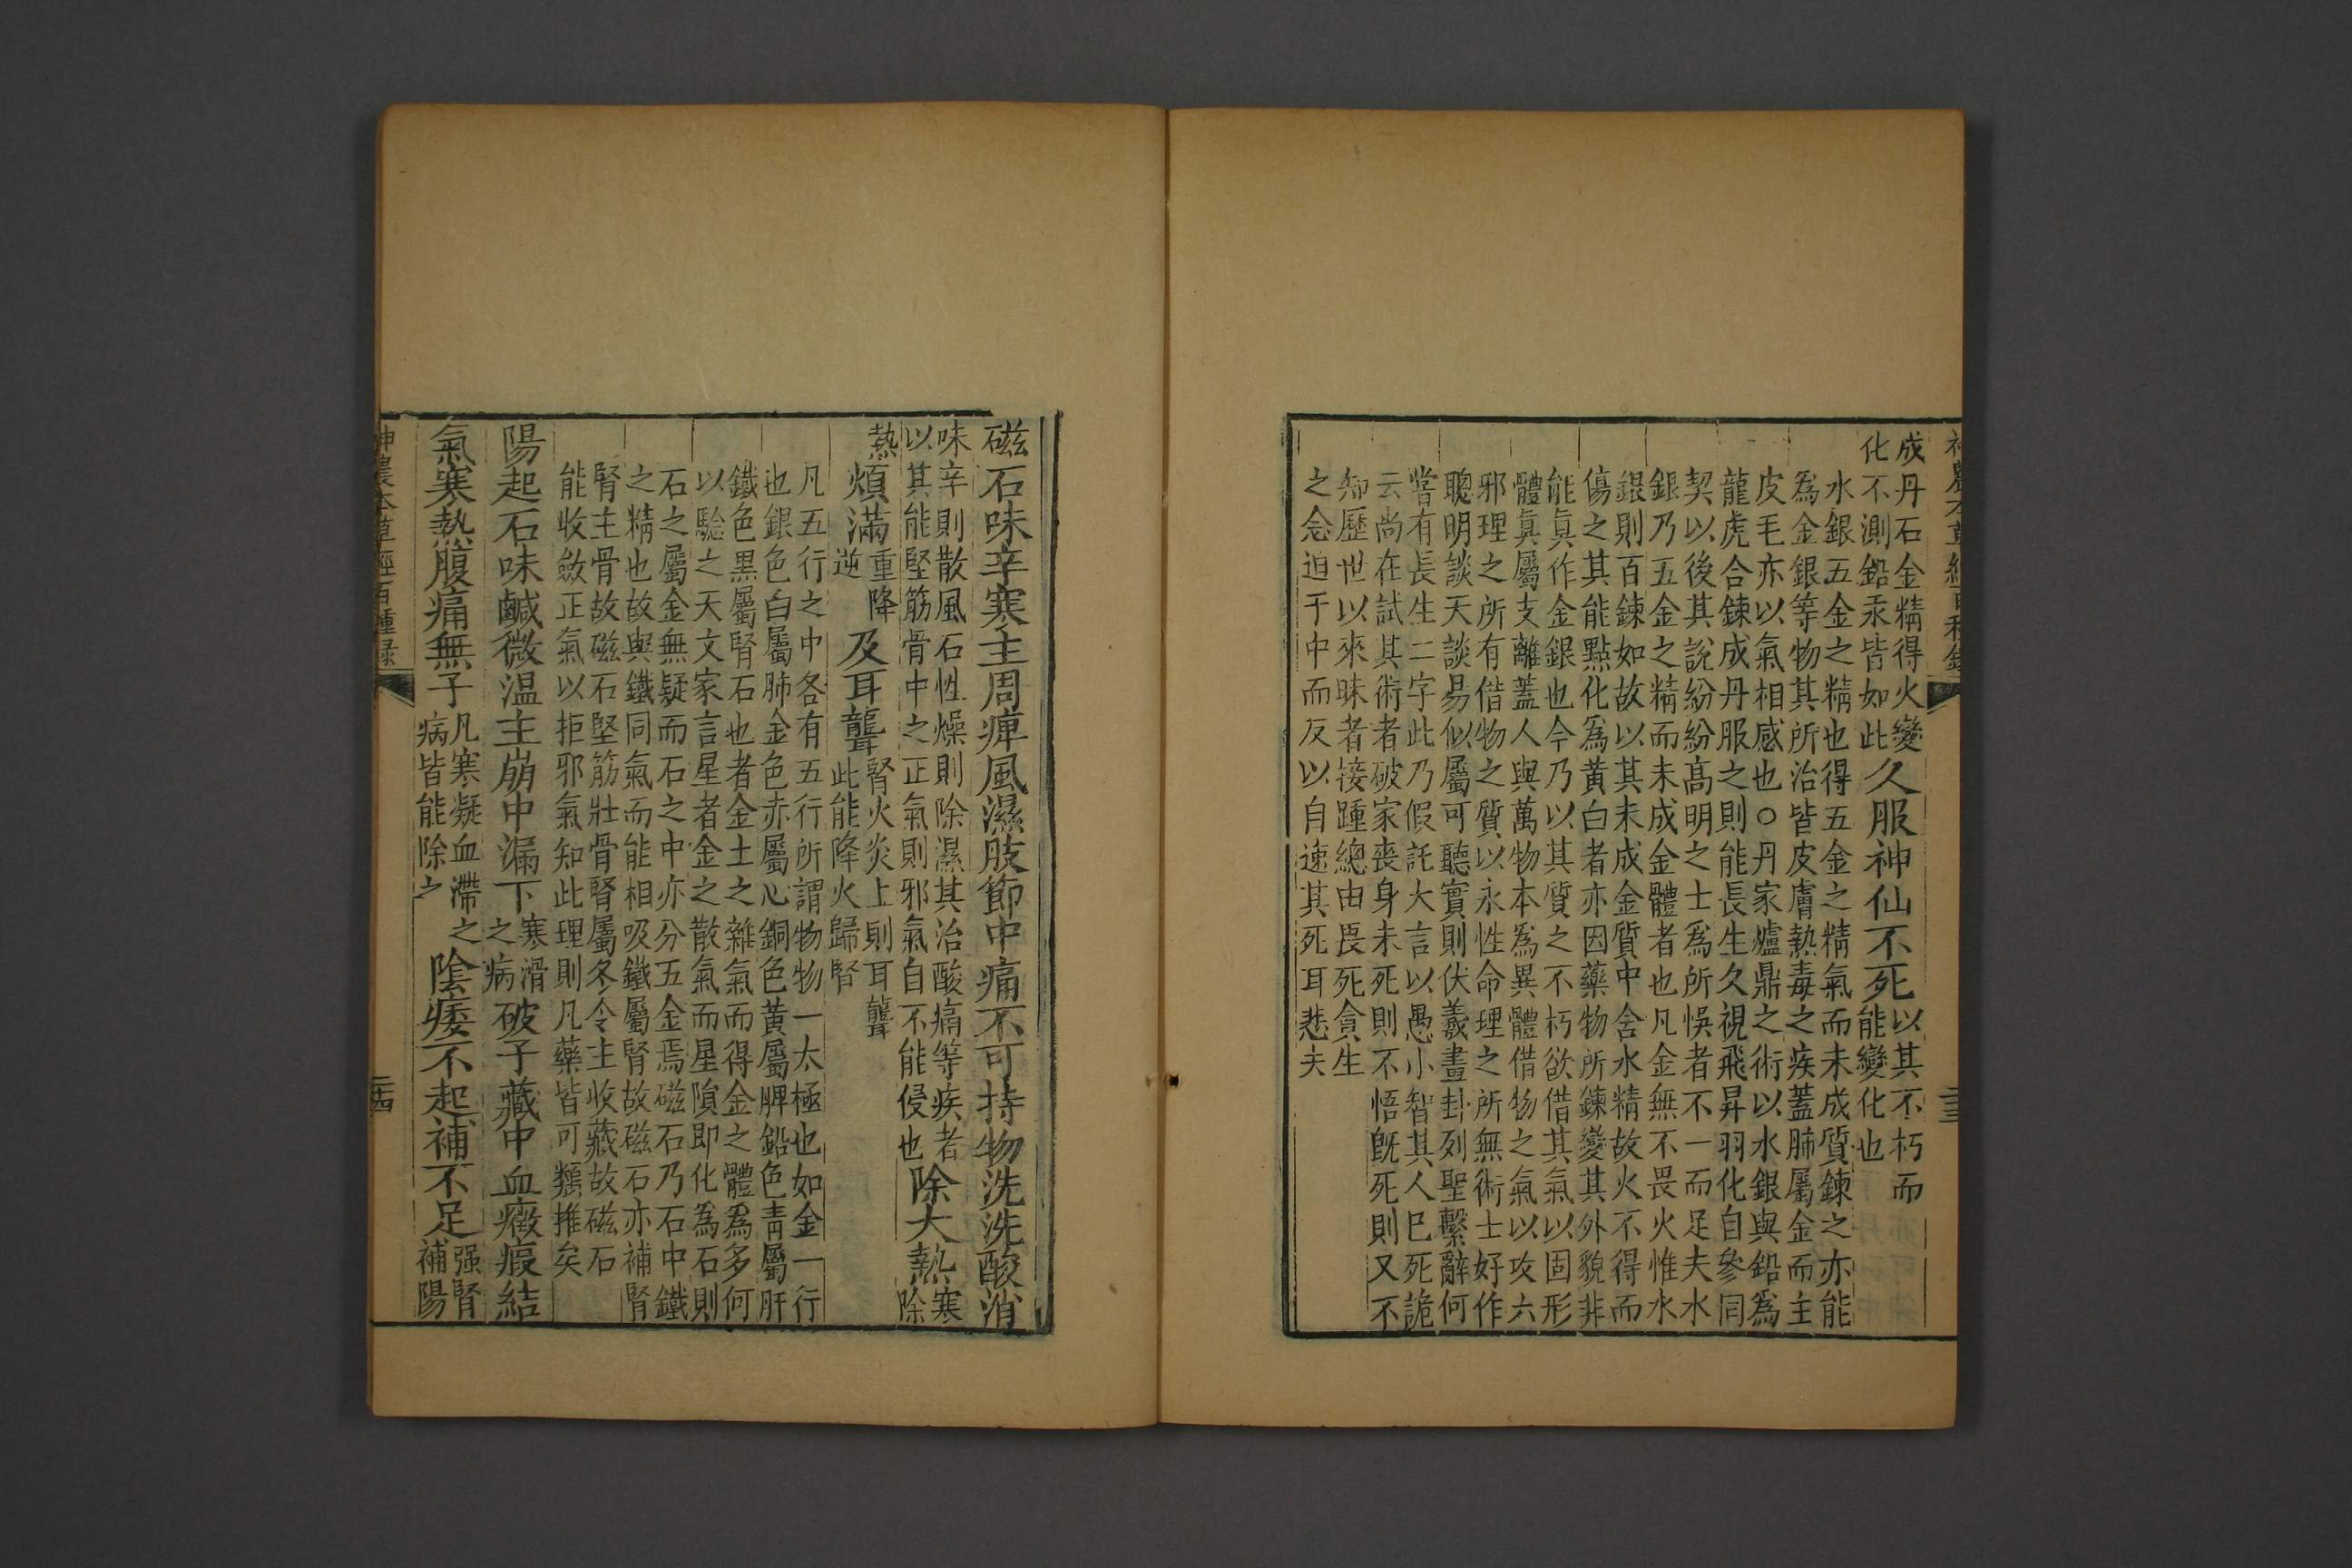 神農本草經百種錄
二三
成丹石金精得火變
化不測鉛汞皆如此
久服神仙不死
以其不朽而
能變化也
水銀五金之精也得五金之精氣而未成質鍊之亦能
為金銀等物其所治皆皮膚熱毒之疾蓋肺屬金而主
皮毛亦以氣相感也○丹家爐鼎之術以水銀與鉛為
龍虎合鍊成丹服之則能長生久視飛昇羽化自參同
契以後其說紛紛高明之士為所悞者不一而足夫水
銀乃五金之精而未成金體者也凡金無不畏火惟水
銀則百鍊如故以其未成金質中含水精故火不得而
傷之其能點化為黃白者亦因藥物所鍊變其外貌非
能眞作金銀也今乃以其質之不朽欲借其氣以固形
體眞屬支離蓋人與萬物本為異體借物之氣以攻六
邪理之所有借物之質以永性命理之所無術士好作
聰明談天談易似屬可聽實則伏羲畫卦列聖繫辭何
嘗有長生二字此乃假託大言以愚小智其人已死詭
云尚在試其術者破家喪身未死則不悟旣死則又不
知歷世以來昧者接踵總由畏死貪生
之念迫于中而反以自速其死耳悲夫
磁石味辛寒主周痺風濕肢節中痛不可持物洗洗酸消
味辛則散風石性燥則除濕其治酸痛等疾者
以其能堅筋骨中之正氣則邪氣自不能侵也
除大熱
寒除
熱
煩滿
重降
逆
及耳聾
腎火炎上則耳聾
此能降火歸腎
凡五行之中各有五行所謂物物一太極也如金一行
也銀色白屬肺金色赤屬心銅色黃屬脾鉛色青屬肝
鐵色黑屬腎石也者金土之雜氣而得金之體為多何
以驗之天文家言星者金之散氣而星隕即化為石則
石之屬金無疑而石之中亦分五金焉磁石乃石中鐵
之精也故與鐵同氣而能相吸鐵屬腎故磁石亦補腎
腎主骨故磁石堅筋壯骨腎屬冬令主收藏故磁石
能收斂正氣以拒邪氣知此理則凡藥皆可類推矣
陽起石味鹹微溫主崩中漏下
寒滑
之病
破子藏中血癥瘕結
氣寒熱腹痛無子
凡寒凝血滯之
病皆能除之
陰痿不起補不足
强腎
補陽
神農本草經百種錄
二四